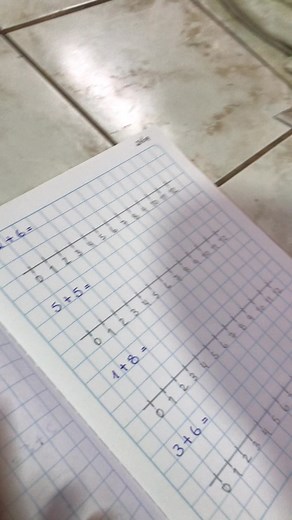 +6=
0 1 2 3 4 5 6 7 8 9 10 11 12
5+5=
0 1 2 3 4 5 6 7 8 9 10 11 12
1+8=
0 1 2 3 4 5 6 7 8 9 10 11 12
3+6=
0 1 2 3 4 5 6